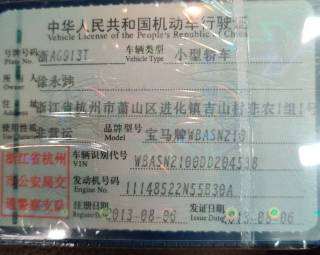 中华人民共和国机动车行驶证
Vehicle License of the People's Republic of China
号牌号码 浙AG913T 车辆类型 小型轿车
Plate No. Vehicle Type
所有人 徐永炜
住址 浙江省杭州市萧山区进化镇吉山村非农1组1号
使用性质 非营运 品牌型号 宝马牌WBASN210
Model
浙江省杭州 车辆识别代号 WBASN2100DD204538
VIN
市公安局交 发动机号码 11148522N55B30A
Engine No.
通警察支队 注册日期 2013-08-06 发证日期 2013-08-06
Register Date Issue Date